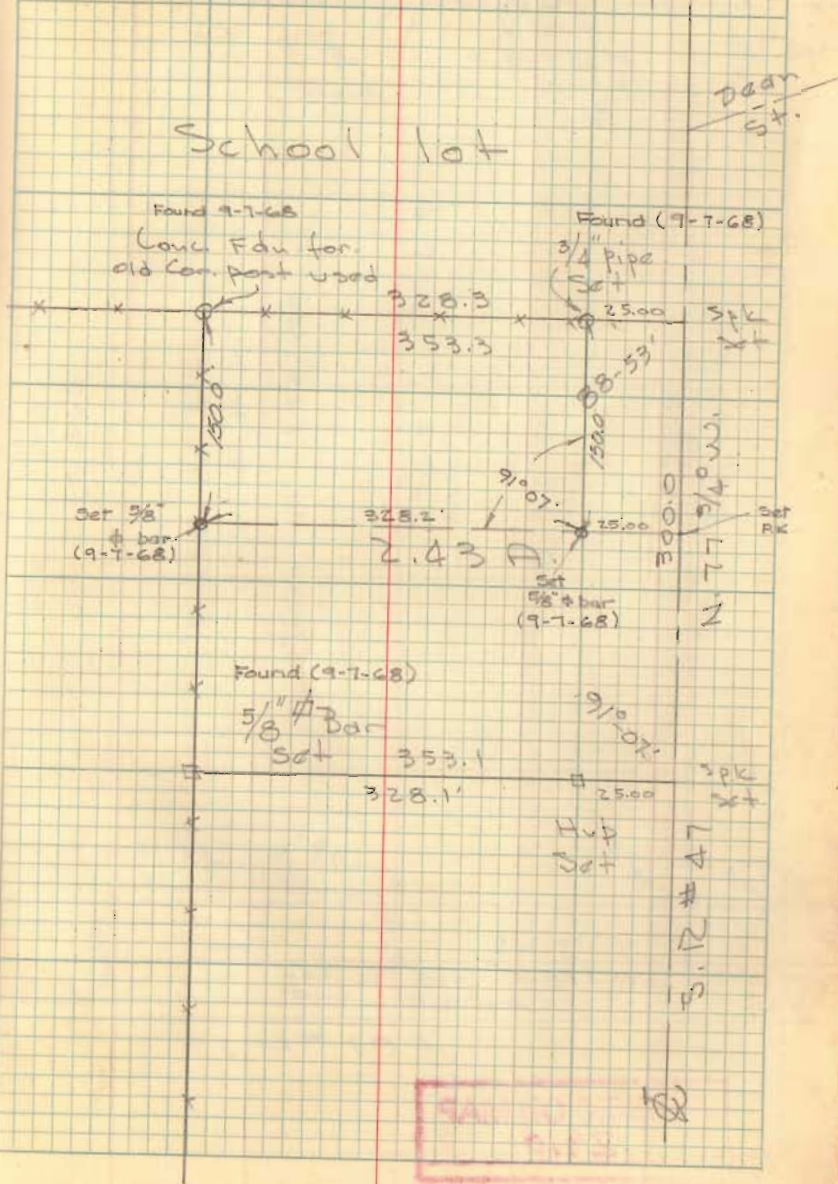 Dean
St.
School lot
Found 9-7-68
Conc. Fdn for
old Cor. post used
Found (9-7-68)
3/4" pipe
Set
328.3
25.00
Spk
Set
353.3
88-53'
150.0
150.0
91°07'
N. 77 3/4° W.
300.0
Set 5/8"
ϕ bar
(9-7-68)
328.2'
25.00
Set
PK
2.43 A.
Set
5/8" ϕ bar
(9-7-68)
Found (9-7-68)
5/8" ϕ Bar
Set
91°-07'
353.1
Spk
Set
328.1'
25.00
Hub
Set
S.R #47